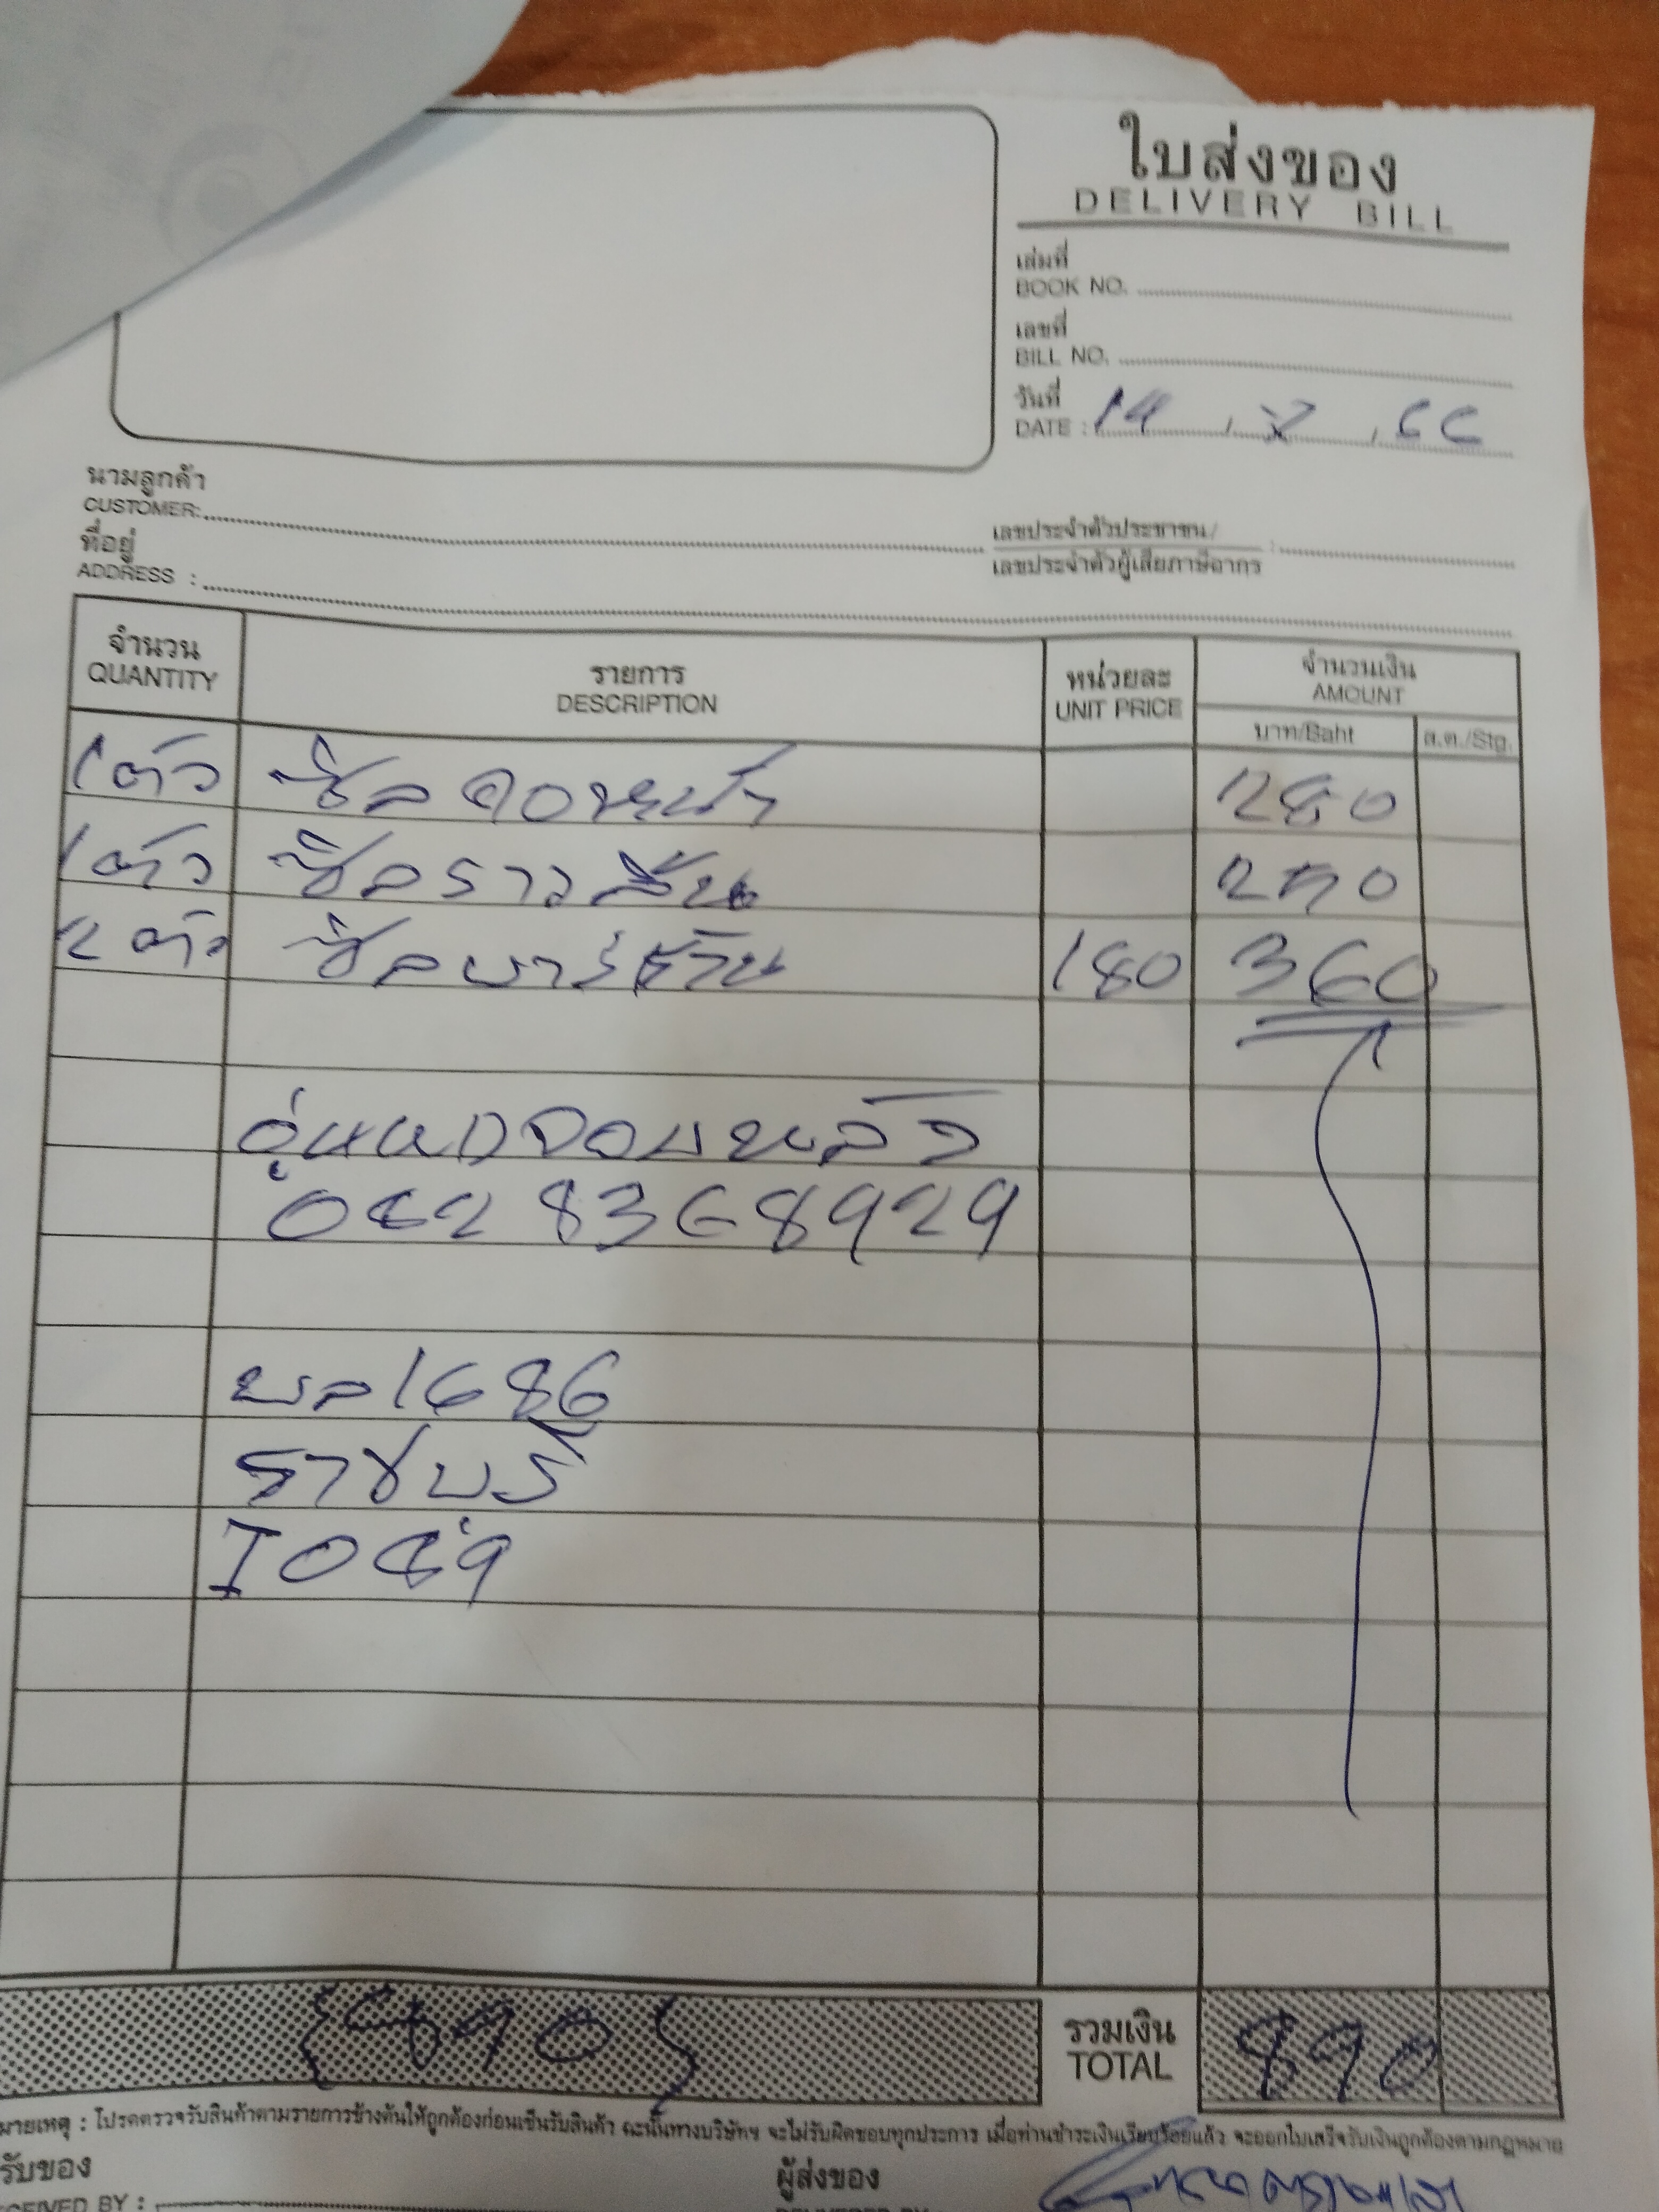 ใบส่งของ
DELIVERY BILL
เล่มที่
BOOK NO.
เลขที่
BILL NO.
วันที่
DATE : 14
นามลูกค้า
CUSTOMER:
เลขประจำตัวประชาชน/
เลขประจำตัวผู้เสียภาษีอากร :
ที่อยู่
ADDRESS :
จำนวน รายการ หน่วยละ จำนวนเงิน
QUANTITY DESCRIPTION UNIT PRICE AMOUNT
บาท/Baht ส.ต./Stg.
1ตัว ซีลคอหน้า 280
1ตัว ซีลราวลิ้น 250
2ตัว ซีล 180 360
0828368929
1686
ราชบุรี
890
รวมเงิน
TOTAL 890
มายเหตุ : โปรดตรวจรับสินค้าตามรายการข้างต้นให้ถูกต้องก่อนเซ็นรับสินค้า ฉะนั้นทางบริษัทฯ จะไม่รับผิดชอบทุกประการ เมื่อท่านชำระเงินเรียบร้อยแล้ว จะออกใบเสร็จรับเงินถูกต้องตามกฎหมาย
รับของ ผู้ส่งของ
CEIVED BY :